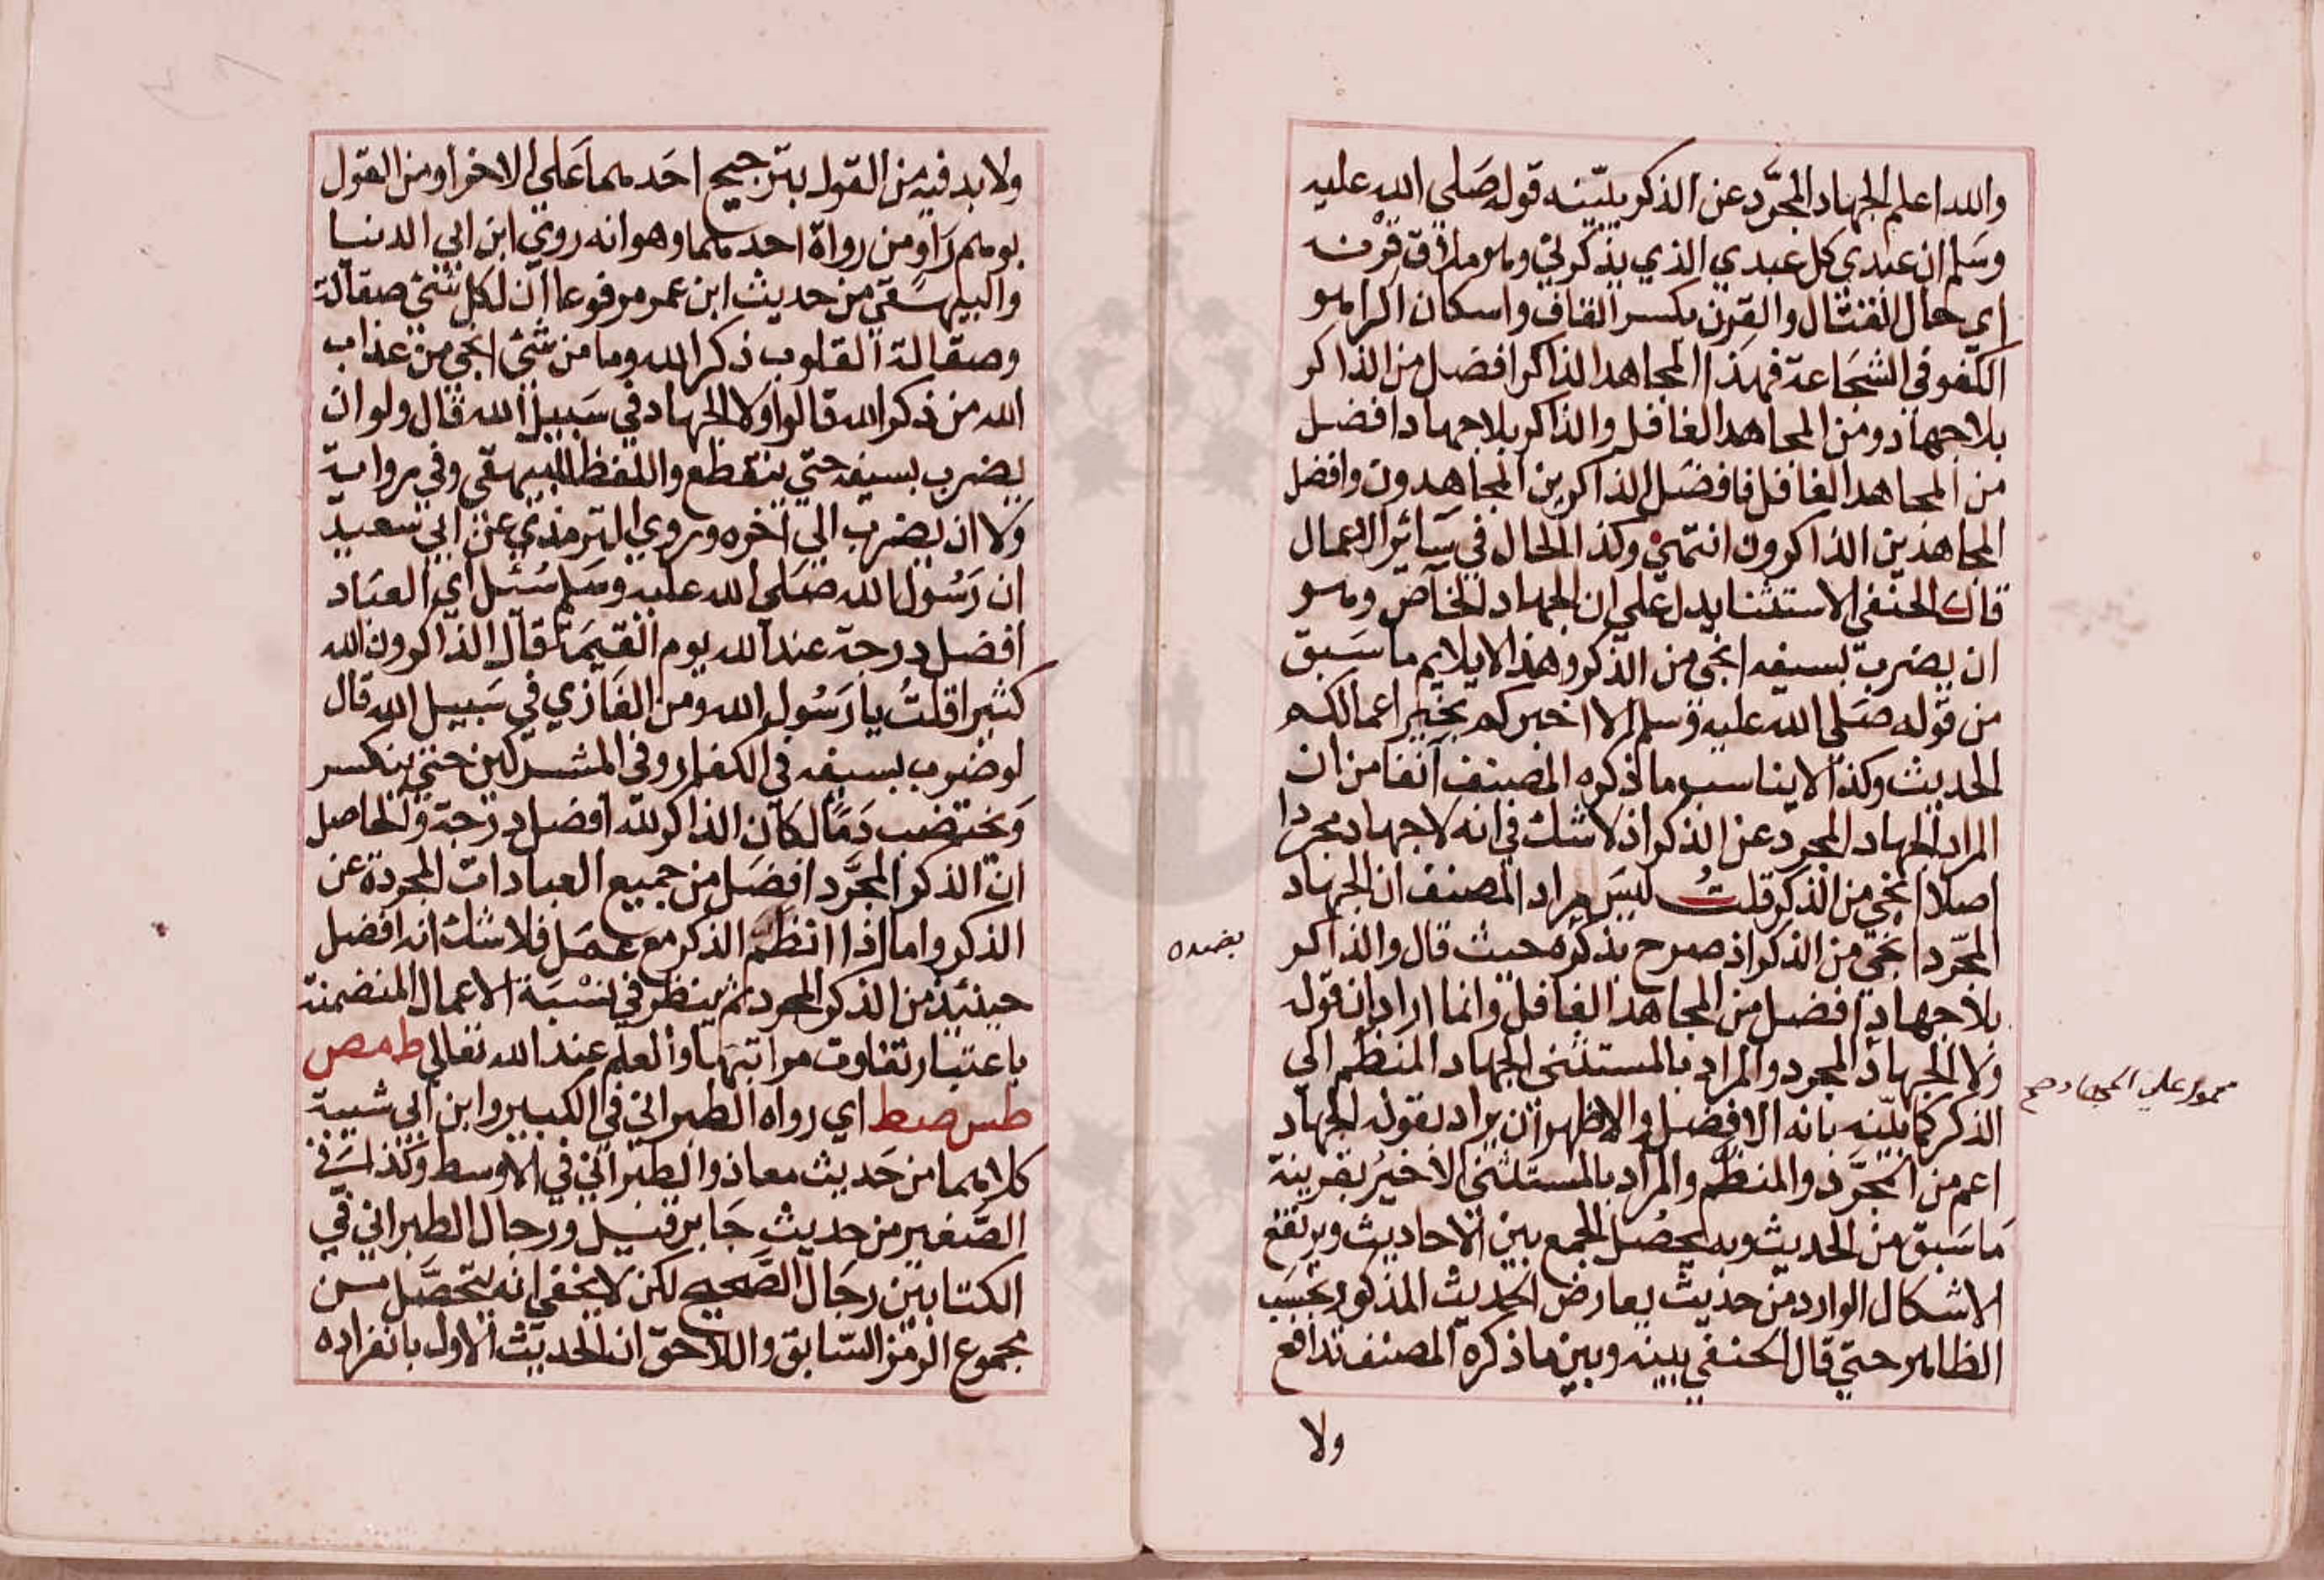 والله اعلم الجهاد المجرَّد عن الذكر يبيّنه قوله صَلي الله عليه
وسَلم ان عبدي كل عبدي الذي يذكرني وهو ملاق قِرْنه
اي حال القتال والقِرن بكسر القاف واسكان الرا هو
الكفو في الشجَاعة فهذا المجاهد الذاكر افضل من الذاكر
بلا جهاد ومن المجاهد الغافل والذاكر بلا جهاد افضل
من المجاهد الغافل فافضَل الذاكرين المجاهدون وافضل
المجاهدين الذاكرون انتهي وكذا الحال في سَائر الاعمال
قال الحنفي الاستثنا يدل علي ان الجهاد الخاص وهو
ان يضرب بسيفه انجي من الذكر وهذا لا يلايم ما سَبق
من قوله صَلي الله عليه وسلم الا اخبركم بخير اعمالكم
الحديث وكذا لا يناسب ما ذكره المصنف آنفا من ان
المراد الجهاد المجرد عن الذكر اذ لا شك في انه لا جهاد مجردا
اصلا انجي من الذكر قلتُ ليسَ مراد المصنف ان الجهاد
المجّرد انجي من الذكر اذ صرح بذكره حيث قال والذاكر
بضده
بلا جهاد افضل من المجاهد الغافل وانما اراد ان قوله
ولا الجهاد المجرد والمراد بالمستثني الجهاد المنظم الي
محمول علي الجهاد صح
الذكر كما بيّنه بانه الافضل والاظهر ان يراد بقوله الجهاد
اعم من المجرَّد والمنظم والمراد بالمستثني الاخير بقرينة
مَا سَبق من الحديث وبه يحصُل الجمع بين الاحاديث ويرتفع
الاشكال الوارد من حديث يعارض الحديث المذكور بحسَب
الظاهر حتي قال الحنفي بينه وبين ما ذكره المصنف تدافع
ولا
ولا بد فيه من القول بترجيح احَدهما عَلي الاخر او من القول
بوهم رَاو من رواة احدهما وهو انه روي ابن ابي الدنيا
والبيهَقي من حديث ابن عمر مرفوعا ان لكل شئ صقالة
وصقالة القلوب ذكر الله وما من شئ انجي من عذاب
الله من ذكر الله قالوا ولا الجهاد في سَبيل الله قال ولو ان
يضرب بسيفه حتي ينقطع واللفظ للبيهقي وفي رواية
ولا ان يضرب الي اخره وروي الترمذي عن ابي سعيد
ان رَسُول الله صَلي الله عليه وسَلم سُئل اي العبَاد
افضل درجة عند الله يوم القيمَة قال الذاكرون الله
كثيرا قلتُ يا رَسُول الله ومن الغَازي في سَبيل الله قال
لو ضرب بسيفه في الكفار وفي المشركين حتي ينكسر
وَيختضب دَمًا لكان الذاكر لله افضل درجة والحاصل
ان الذكر المجرَّد افضَل من جميع العبادات المجردة عن
الذكر واما اذا انتظَم الذكر مع عمَل فلا شك انه افضل
حينئذ من الذكر المجرد ثم ينظر في نسْبَة الاعمال المنضمنة
باعتبار تفاوت مراتبهَا والعلم عند الله تعالي ط مص
طس صط اي رواه الطبراني في الكبير وابن ابي شيبة
كلاهما من حَديث معاذ والطبراني في الاوسط وكذا في
الصَّغير من حديث جَابر قيل ورجال الطبراني في
الكتابين رجَال الصَّحيح لكن لا يخفي انه يتحصَّل من
مجموع الرمز السَّابق واللاحق ان الحديث الاول بانفراده